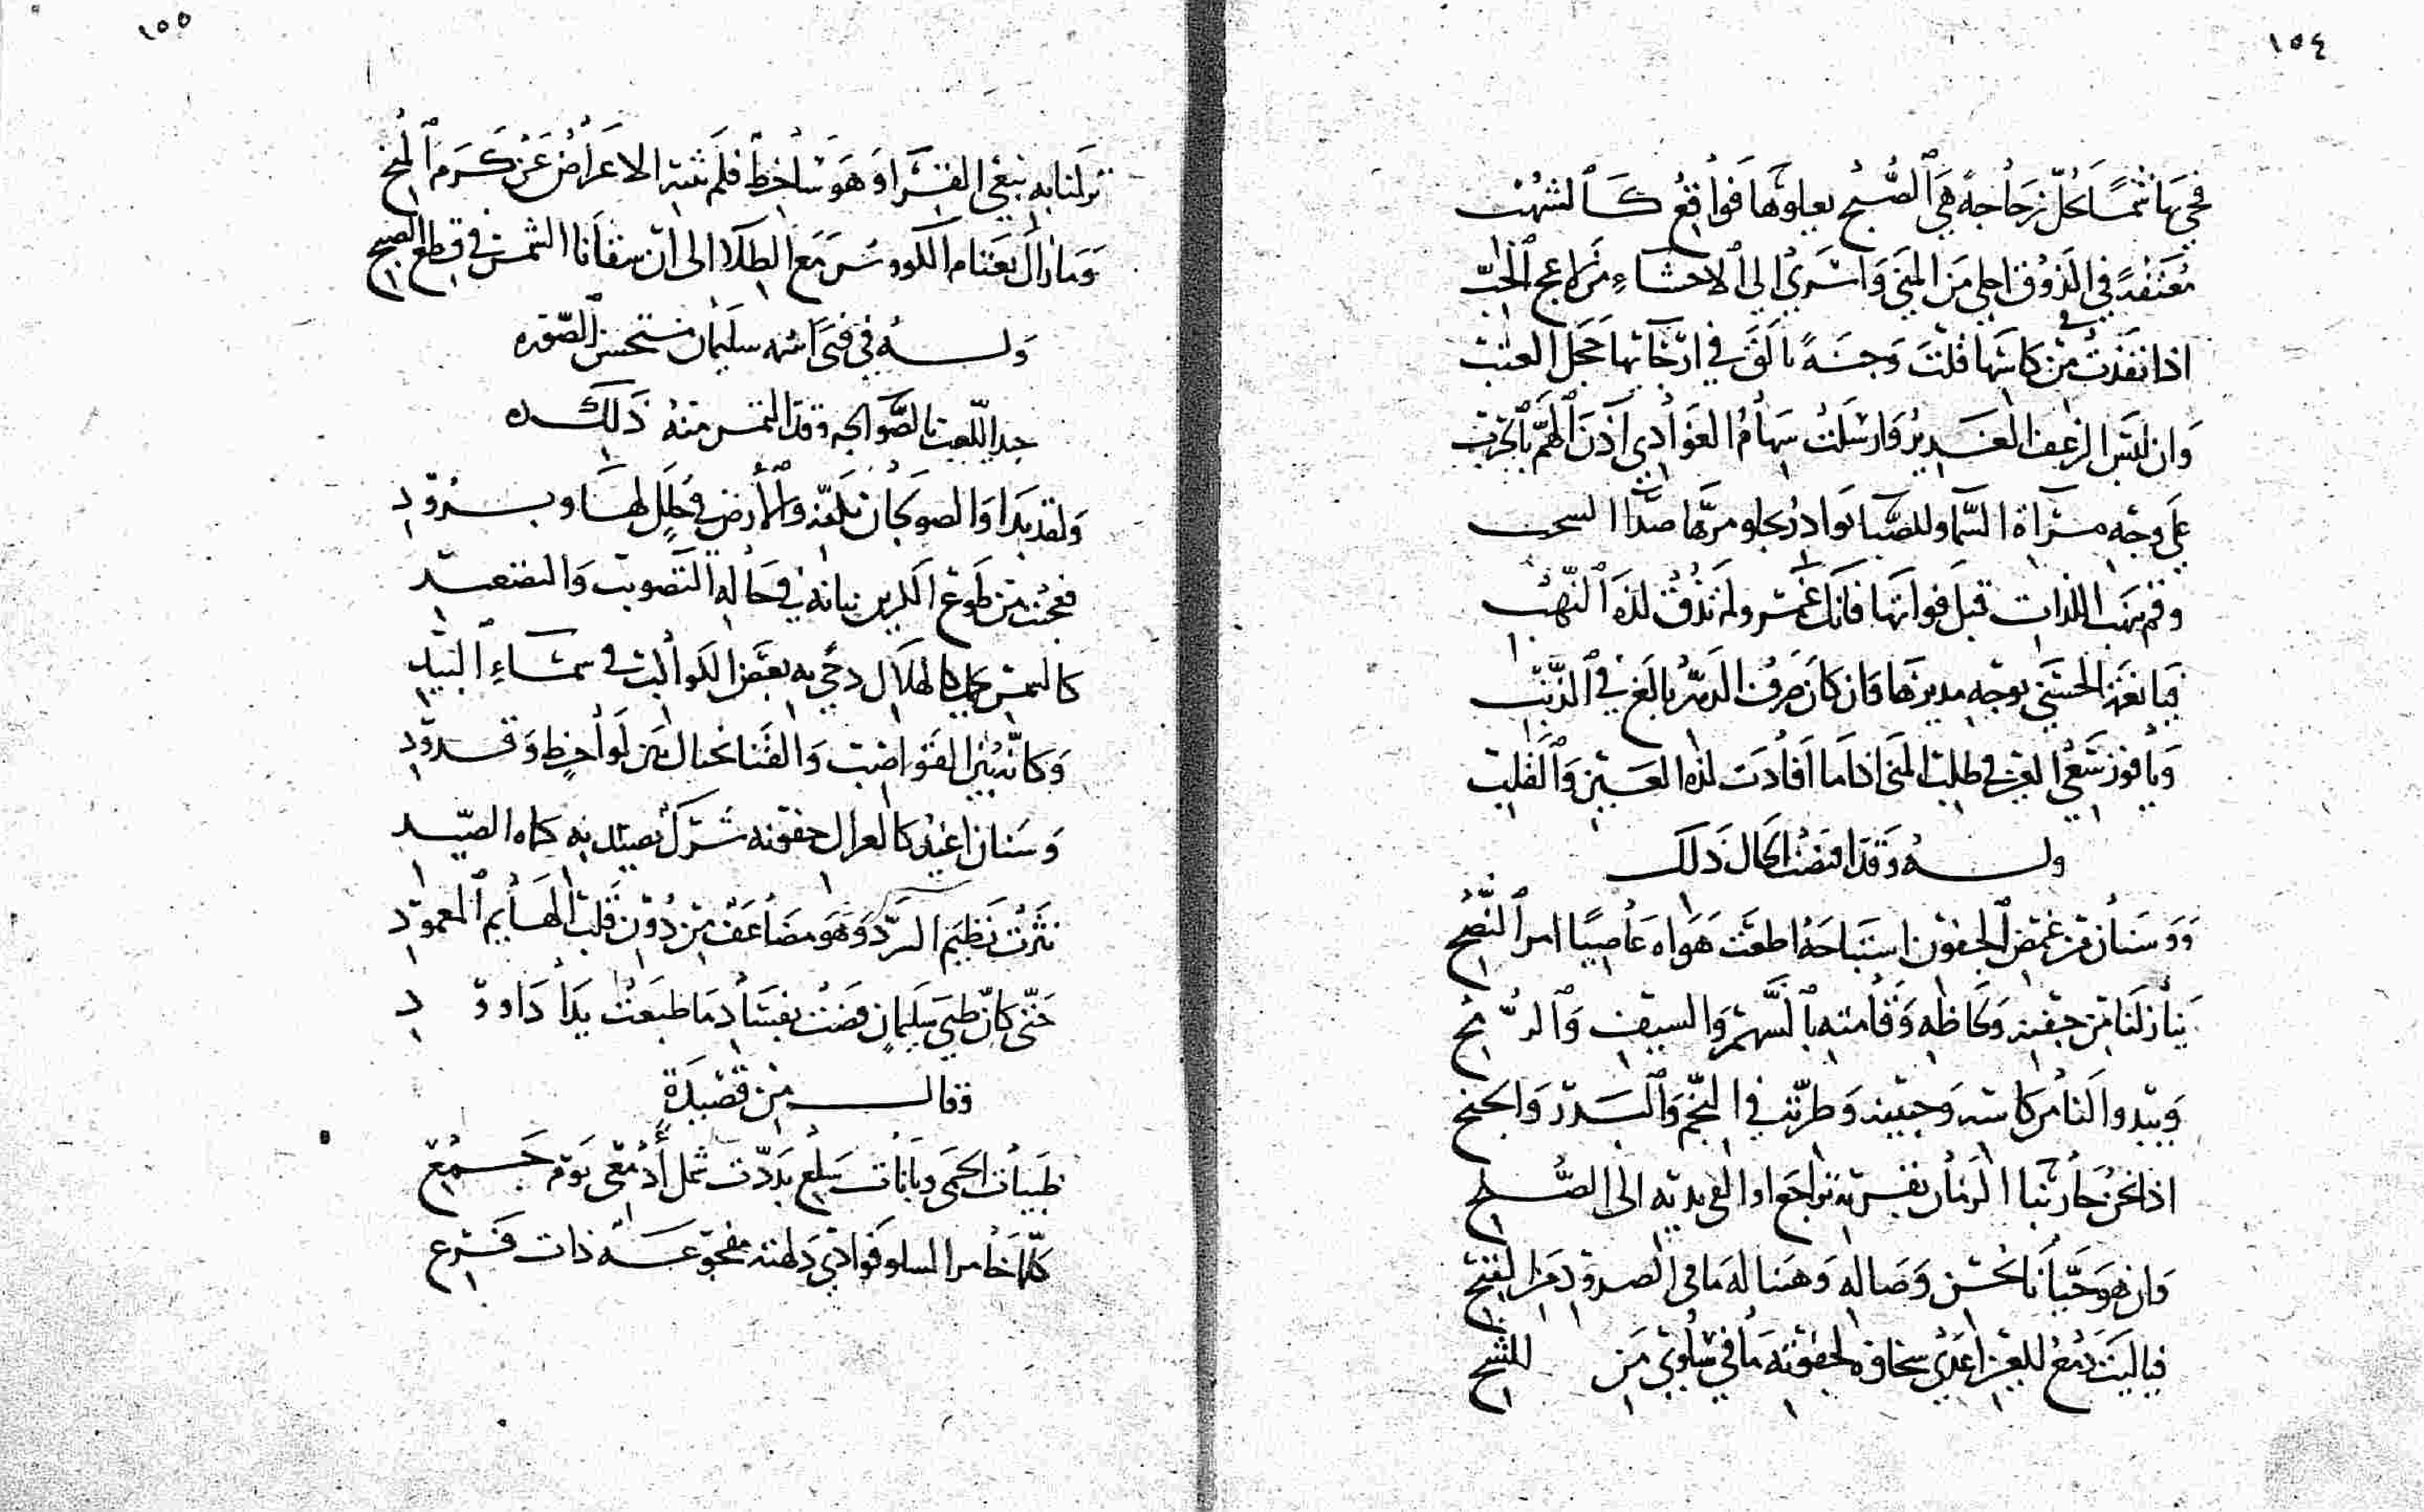 ١٥٤
فجئ بها شمسًا تحل زجاجة هي الصبح يعلوها فواقع كالشهب
معتقة في الذوق احلى من المنى واسرى الى الاحشاء من لاعج الحب
اذا نفذت من كاسها قلت وجنة تالق في ارجائها خجل العتب
وان لبس الزعف الغدير وارسلت سهام الغوادي آذن الهم بالحرب
على وجه مرآة السما وللصبا بوادر يجلو مرها صدا السحب
وقم نهب اللذات قبل فواتها فانك غمر ولم تذق لذة النهب
فيا نعمة الحسنى بوجه مديرها وان كان صرف الدهر بالغ في الذنب
ويا فوز سعي العين في طلب المنى اذا ما افادت لذة العين والقلب
وله وقد اقتضت الحال ذلك
ووسنان من غمض الجفون استباحه اطعت هواه عاصيًا امر النصح
ينازلنا من جفنه ولحاظه وقامته بالسهم والسيف والرمح
ويبدو لنا من كاسه وجبينه وطرته في النجم والبدر والجنح
اذا نحن حاربنا الزمان بقربه تراجع والقى يديه الى الصلح
وان هو حيانا بحسن وصاله وهبنا له ما في الصدود من القبح
فيا ليت دمع العين اعدى سخاؤه لجفوته ما في سلوي من الشح
١٥٥
نزلنا به نبغي القرا وهو ساخط فلم يثنه الاعراض عن كرم المنح
وما زال يغنام الكووس مع الطلا الى ان سقانا الشمس في قطع الصبح
وله في فتى اسمه سليمان مستحسن الصوره
جيد اللعب بالصوالجه وقد التمس منه ذلك
ولقد بدا والصولجان بكفه والارض في حلل لها وبرود
فعجبت من طوع الكرين بنانه في حاله التصويب والتصعيد
كالشمس حل بالهلال دحي به بعض الكواكب في سماء البيد
وكانه بين القواضب والقنا يختال بين لواحظ وقدود
وسنان اغيد كالغزال جفونه شرك يصيد به كماة الصيد
نثرت نظيم السرد وهو مضاعف من دون قلب الهايم المعمود
حتى كان ظبي سليمان قضت بفساد ما طبعت يدا داوود
وقال من قصيدة
ظبيات الحمى وبانات سلع بددت شمل أدمعي يوم جمع
كلما خامر السلو فوادي دلهته مفجوعة ذات فرع